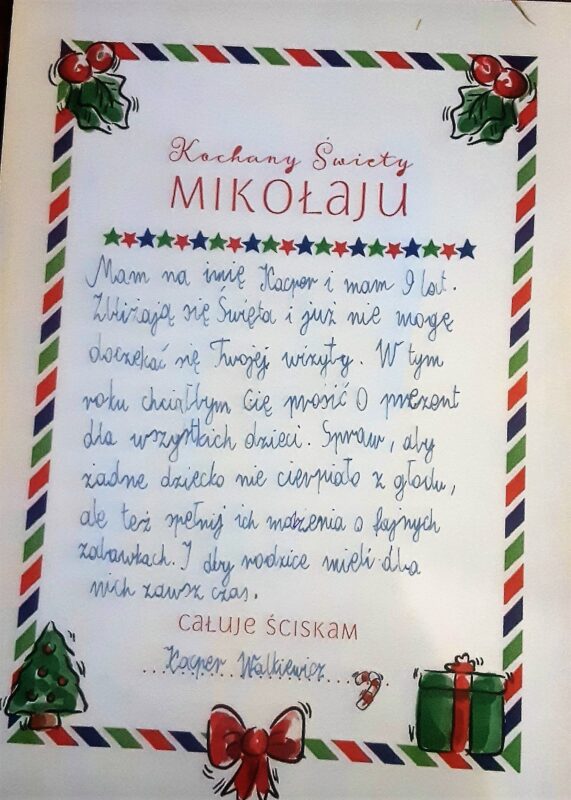 Kochany Święty
MIKOŁAJU
Mam na imię Kacper i mam 9 lat.
Zbliżają się Święta i już nie mogę
doczekać się Twojej wizyty. W tym
roku chciałbym Cię prosić O prezent
dla wszystkich dzieci. Spraw, aby
żadne dziecko nie cierpiało z głodu,
ale też spełnij ich marzenia o fajnych
zabawkach. I aby rodzice mieli dla
nich zawsz czas.
CAŁUJE ŚCISKAM
Kacper Walkiewicz